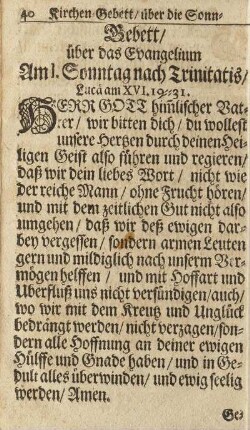 40 Kirchen-Gebett/ über die Sonn-
Gebett/
über das Evangelium
Am 1. Sonntag nach Trinitatis/
Lucä am XVI. 19-31.
HERR GOTT himlischer Vat-
ter/ wir bitten dich/ du wollest
unsere Hertzen durch deinen Hei-
ligen Geist also führen und regieren/
daß wir dein liebes Wort/ nicht wie
der reiche Mann/ ohne Frucht hören/
und mit dem zeitlichen Gut nicht also
umgehen/ daß wir deß ewigen dar-
bey vergessen/ sondern armen Leuten
gern und mildiglich nach unserm Ver-
mögen helffen/ und mit Hoffart und
Uberfluß uns nicht versündigen/ auch/
wo wir mit dem Kreutz und Unglück
bedrängt werden/ nicht verzagen/ son-
dern alle Hoffnung an deiner ewigen
Hülffe und Gnade haben/ und in Ge-
dult alles überwinden/ und ewig seelig
werden/ Amen.
Ge-